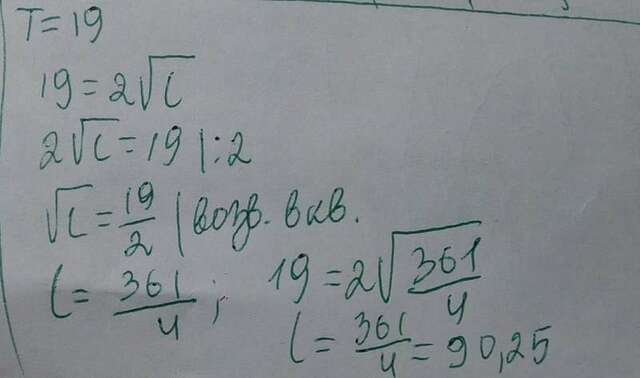 T=19
19=2√l
2√l=19 |:2
√l=19/2 | возв. в кв.
l=361/4; 19=2√361/4
l=361/4=90,25